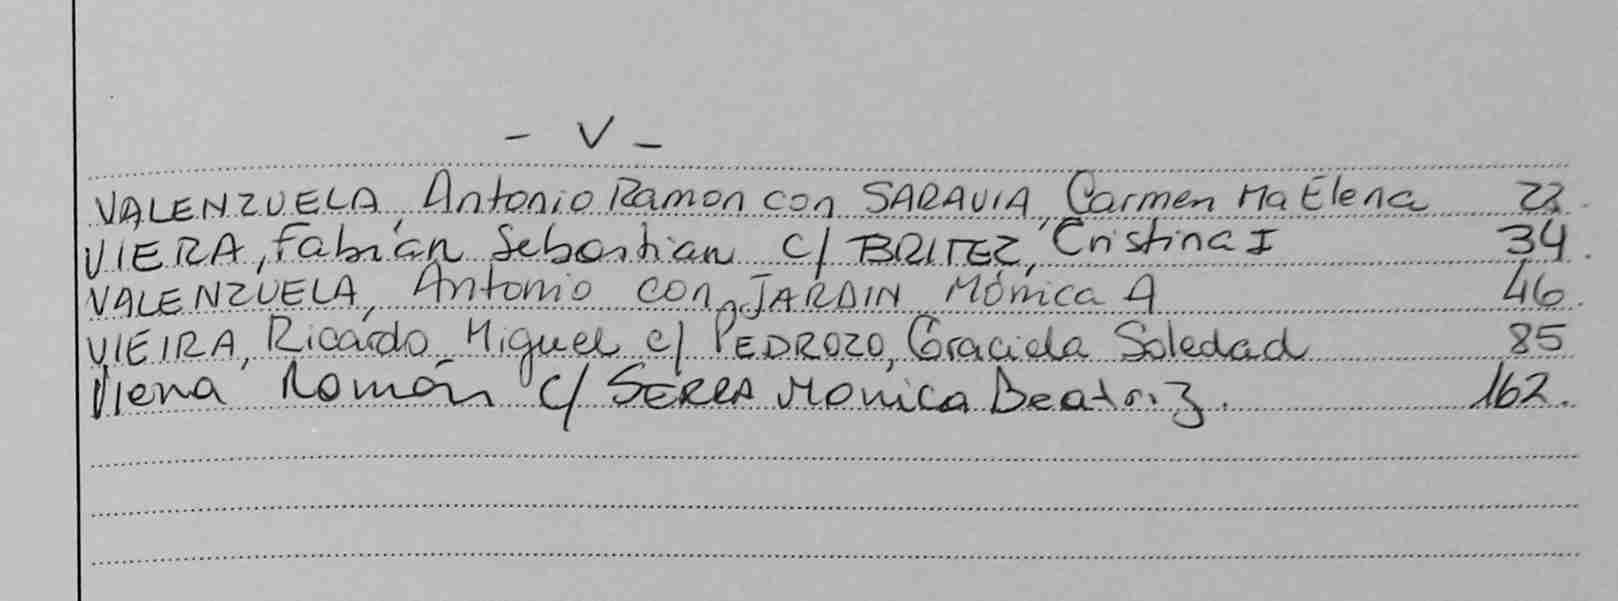 - V -
VALENZUELA, Antonio Ramon con SARAVIA, Carmen Ma Elena 22.
VIERA, Fabián Sebastian c/ BRITEZ, Cristina I 34.
VALENZUELA, Antonio con JARDIN Mónica A 46.
VIEIRA, Ricardo Miguel c/ PEDROZO, Graciela Soledad 85
Viena Román c/ SERRA Monica Beatriz. 162.